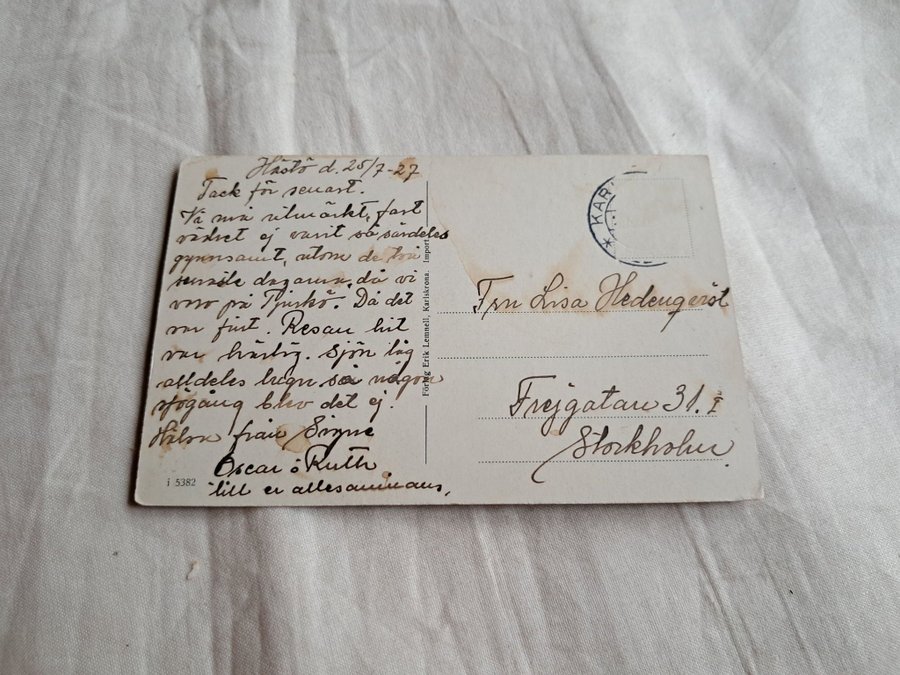 Hästö d. 25/7-27
Tack för senast.
Vi må utmärkt, fast
vädret ej varit så särdeles
gynnsamt, utom de två
senaste dagarna, då vi
voro på Tjurkö. Då det
var fint. Resan hit
var härlig. Sjön låg
alldeles lugn så någon
sjögång blev det ej.
Hälsn från Signe
Oscar o Ruth
till er allesammans,
i 5382
Förlag Erik Lemnell, Karlskrona. Import
* KAR
Fru Lisa Hedengvist
Frejgatan 31.
Stockholm.